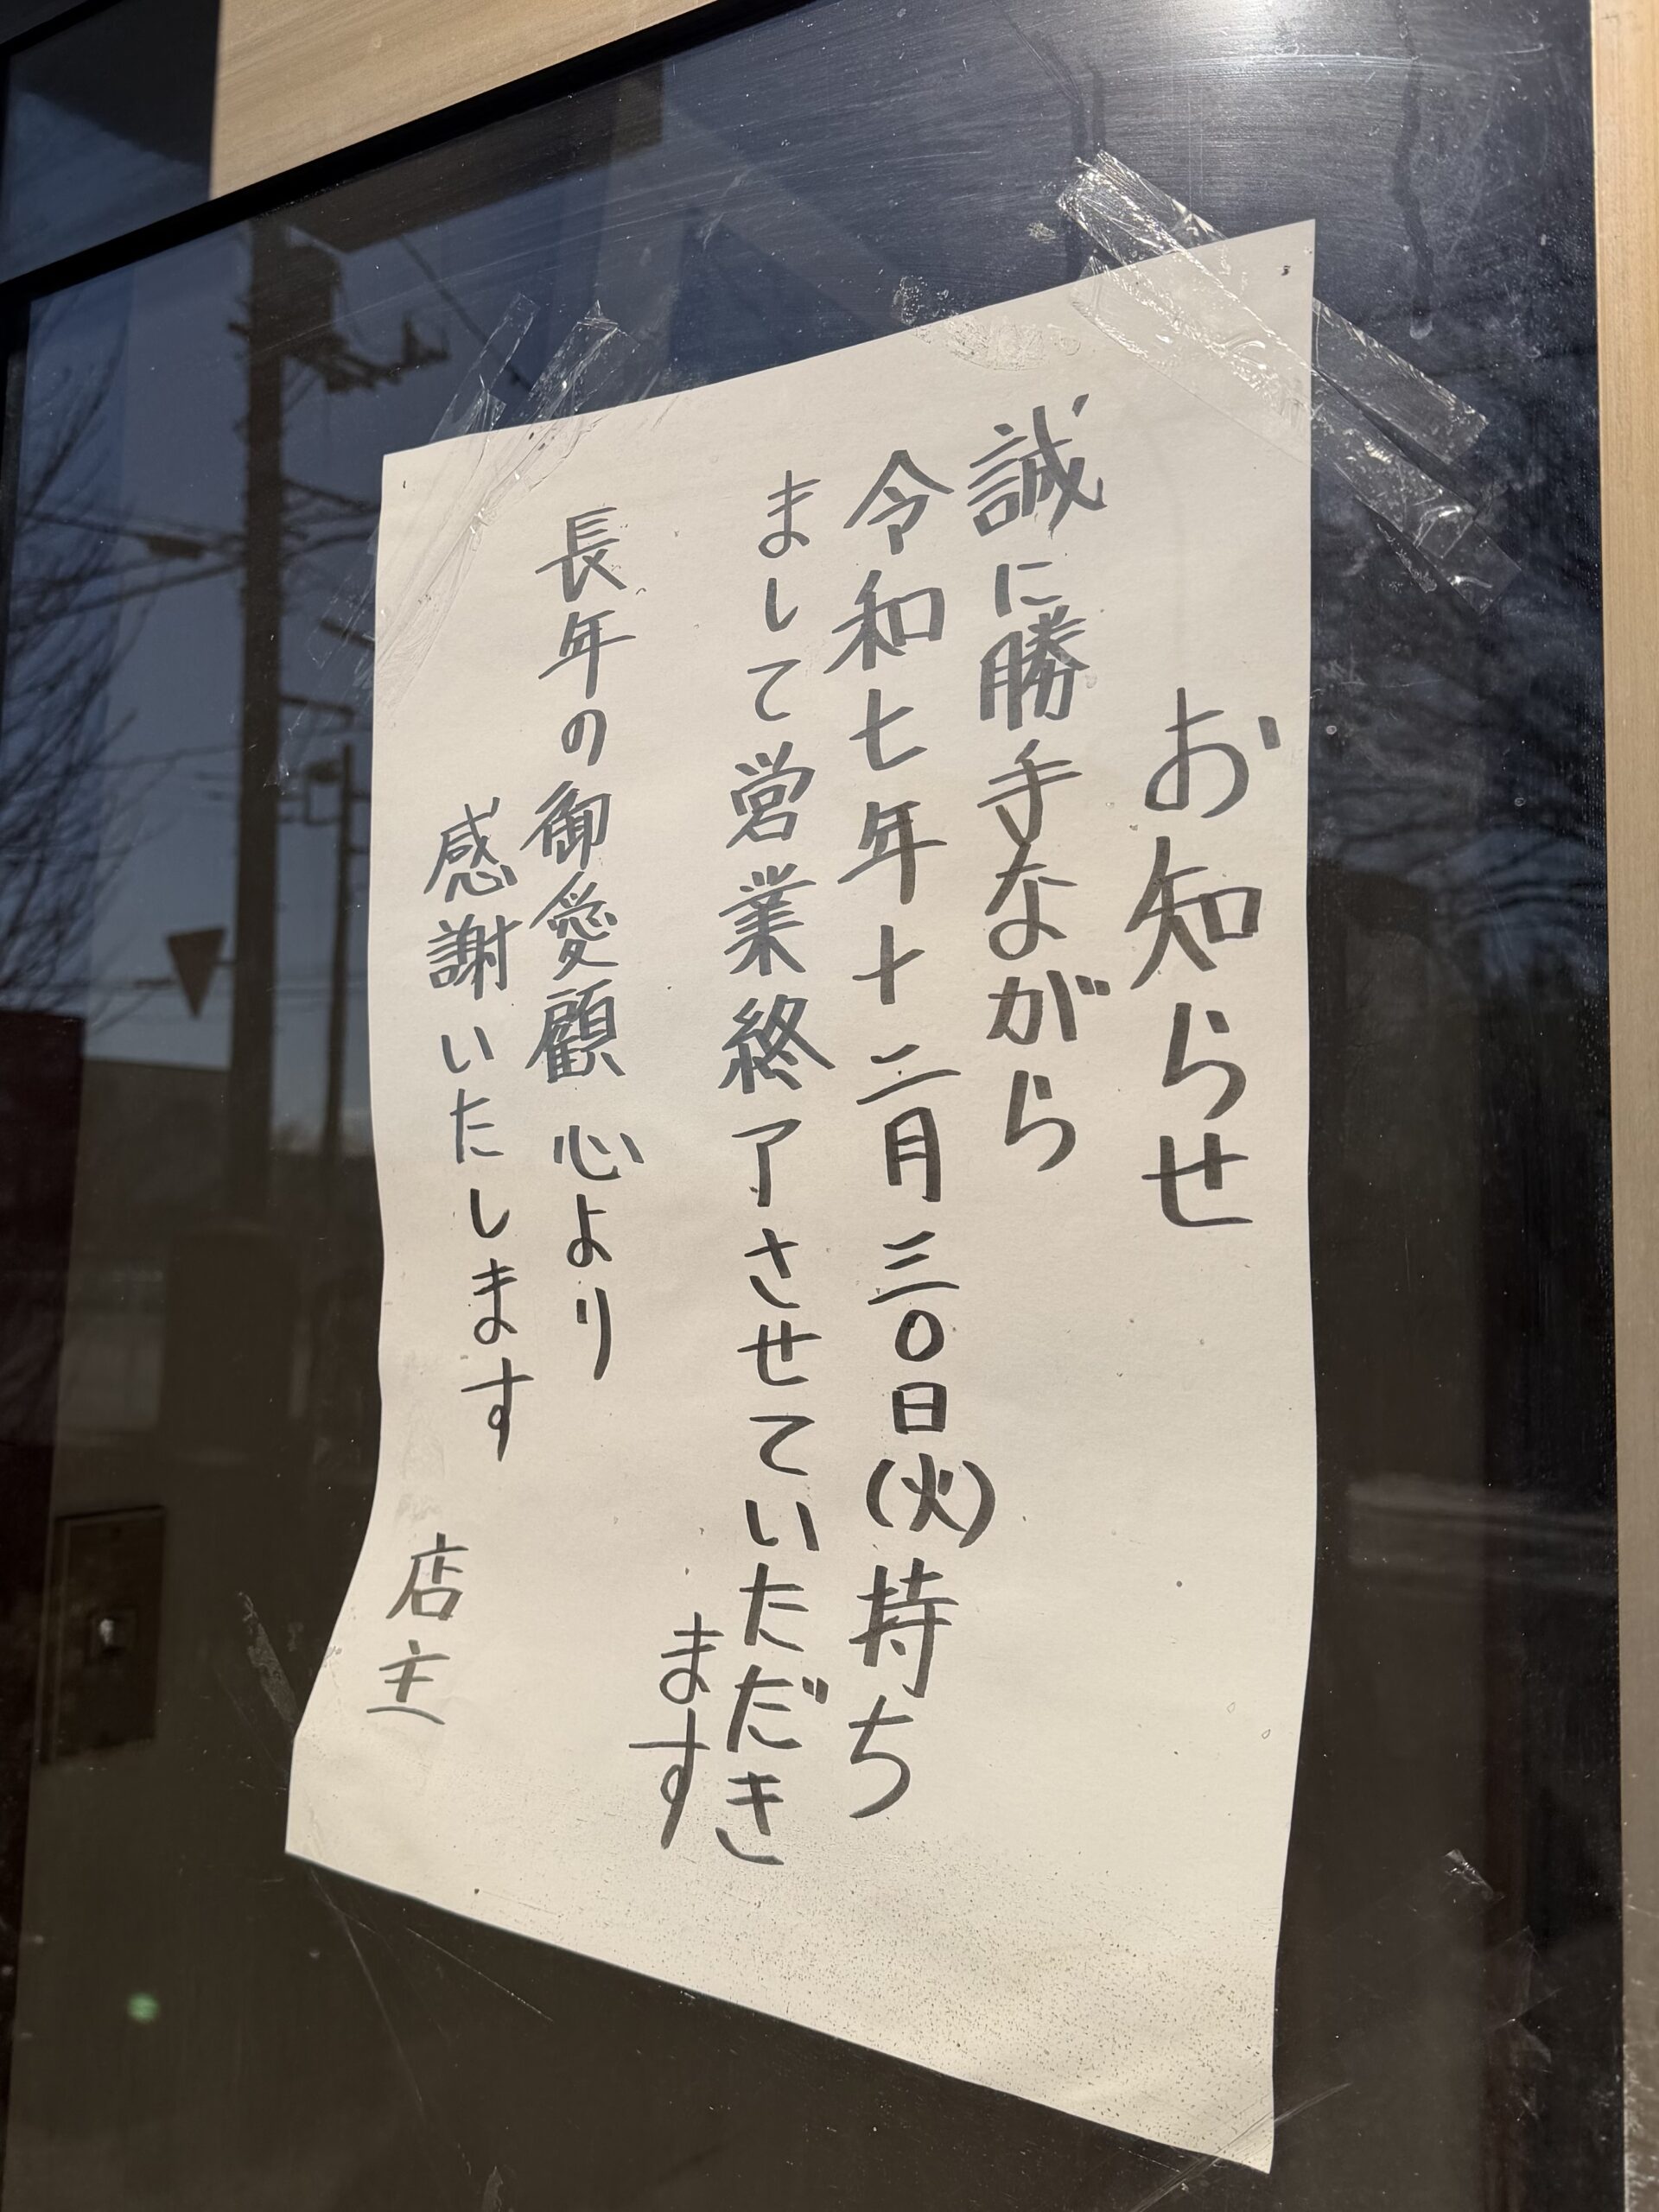 お知らせ
誠に勝手ながら
令和七年十二月三〇日(火)持ち
まして営業終了させていただき
ます
長年の御愛顧心より
感謝いたします
店主